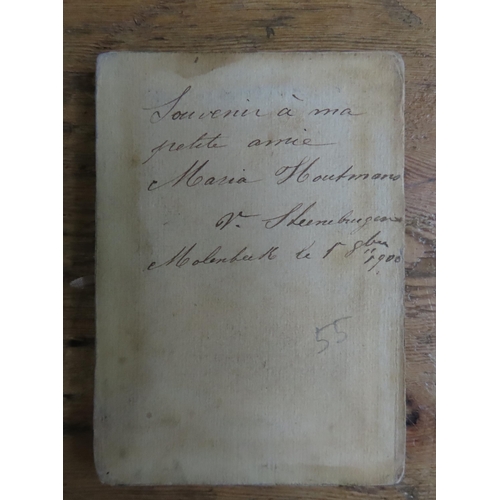 Souvenir à ma
petite amie
Maria Houtmans
V. Steenebruggen
Molenbeek le 5 9bre
1900
55